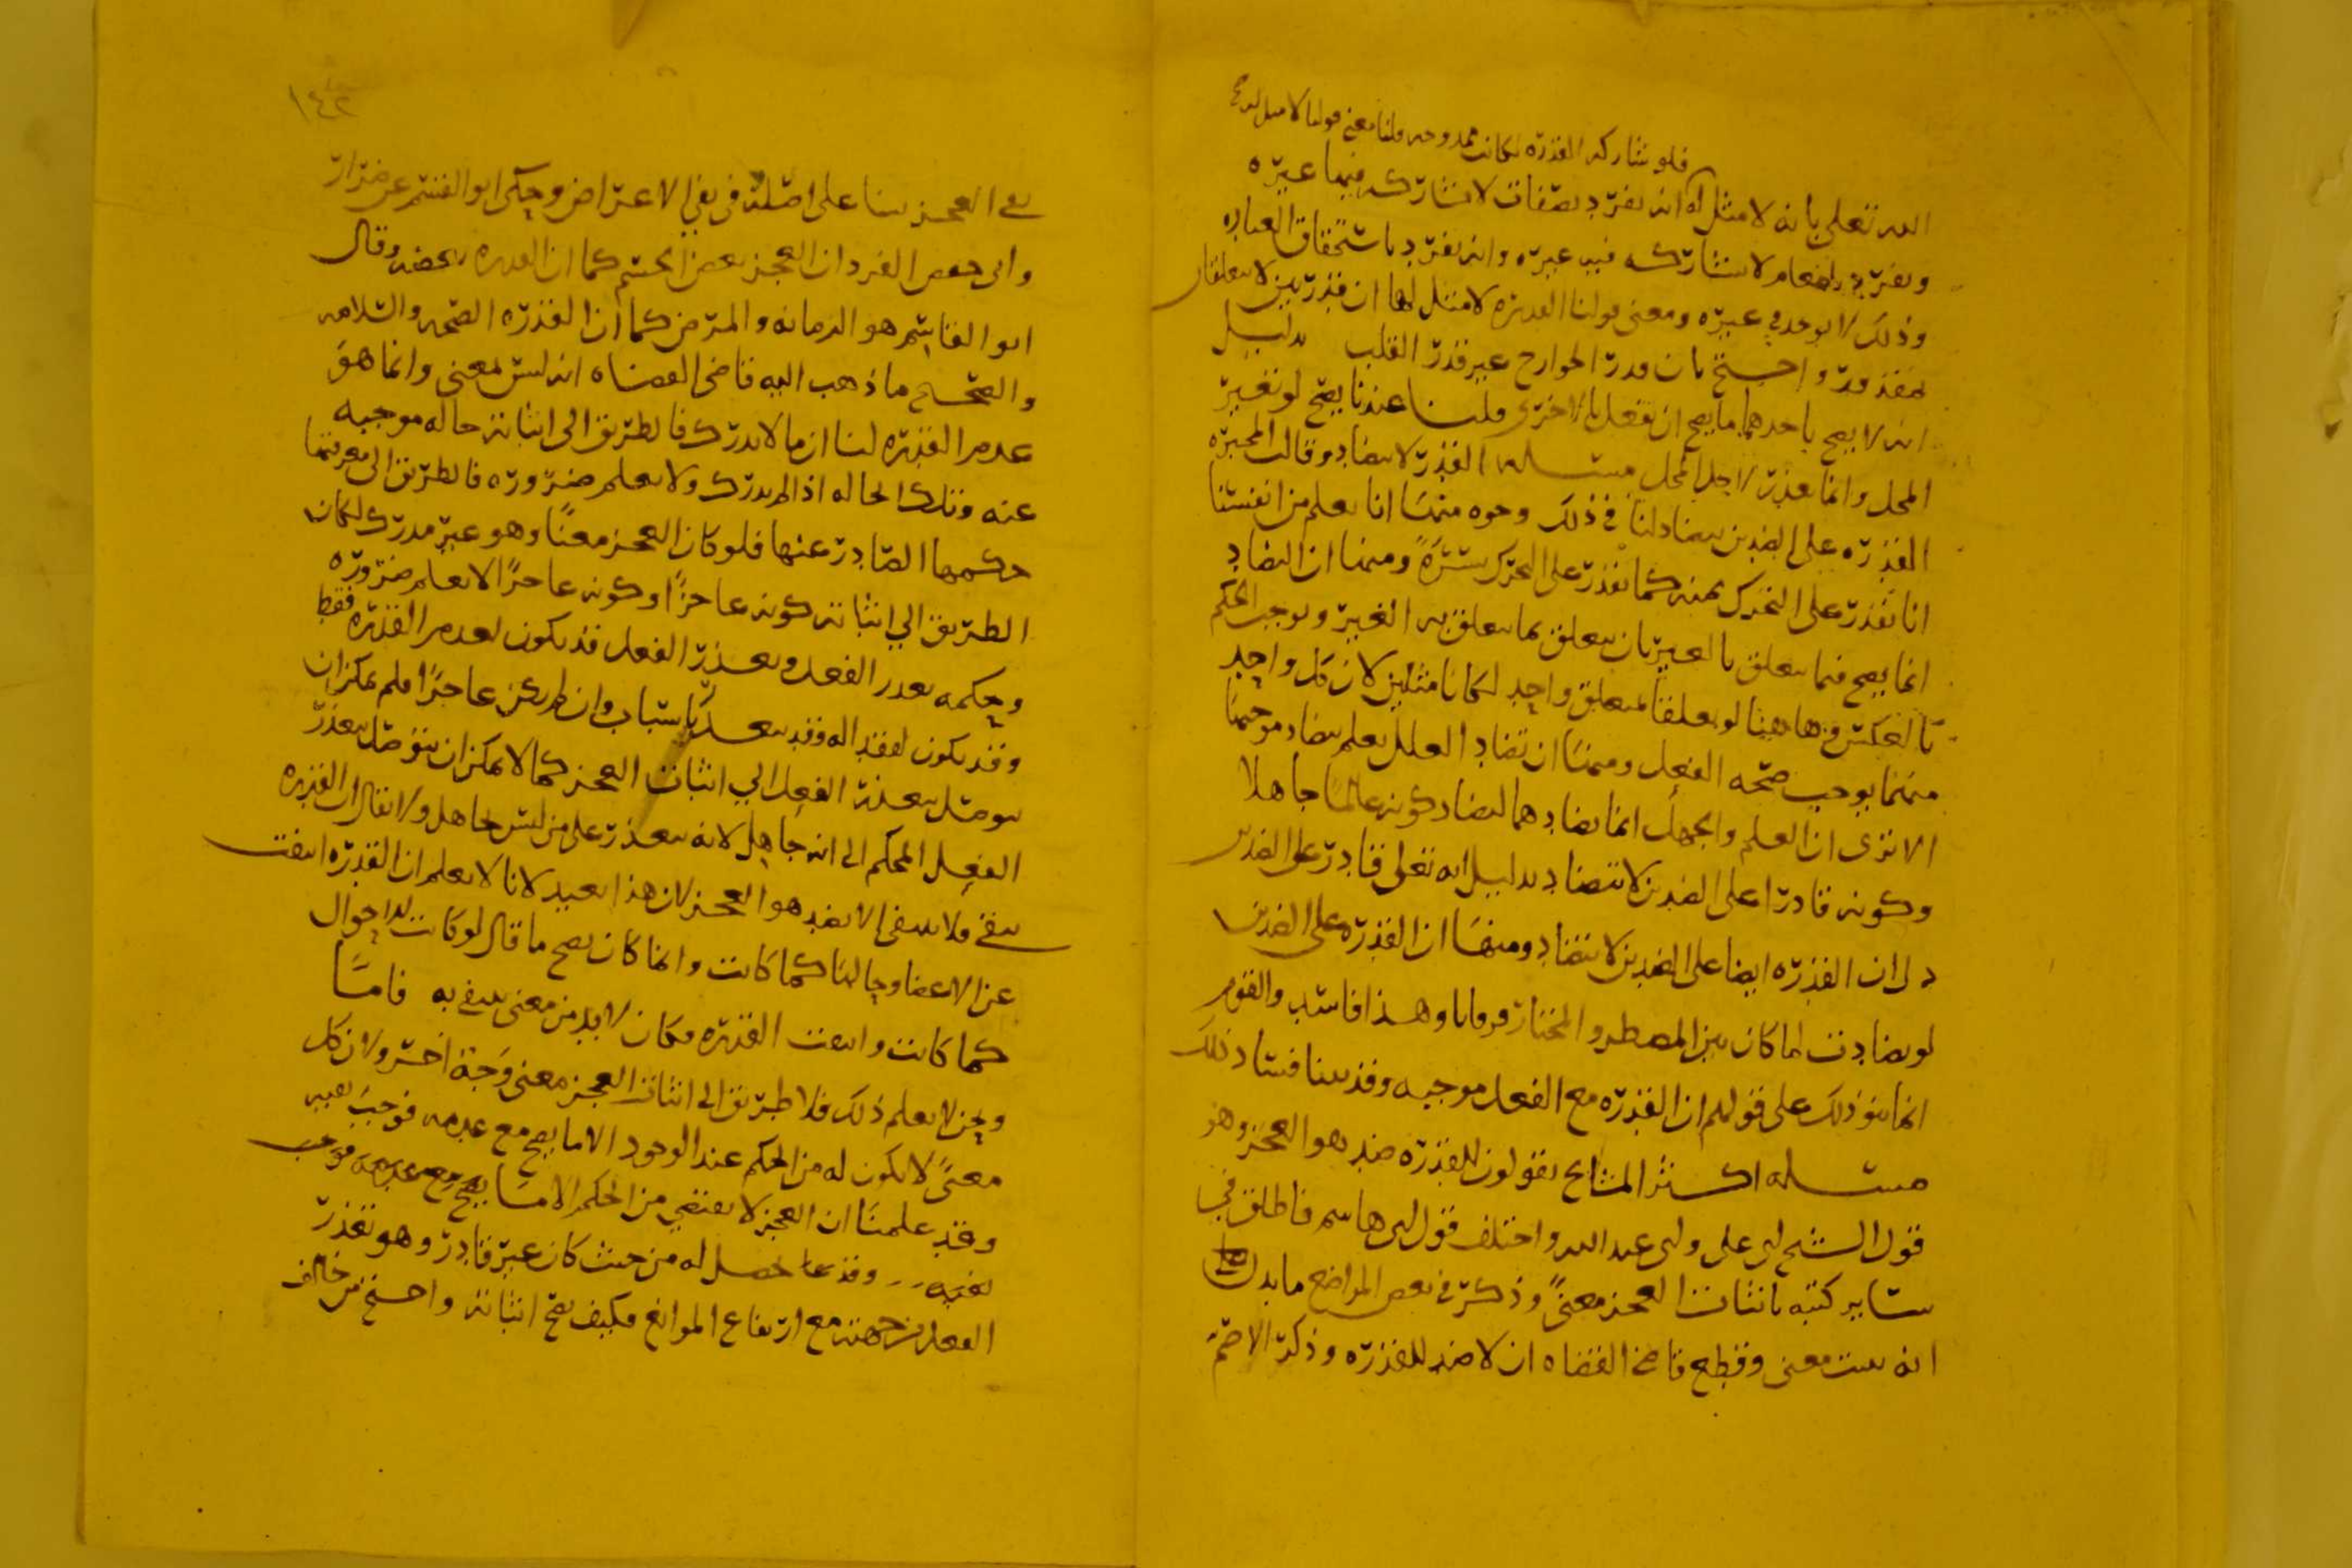 فلو شاركه القدره لكانت ممدوحه قلنا معنى قولنا لا مثل لله
الله تعلى بانه لا مثل له انه يفرد بصفات لا يشاركه فيها غيره
ويفرد بافعال لا يشاركه فيها غيره وانه يفرد باستحقاق العباده
وذلك لا يوجد في غيره ومعنى قولنا القدره لا مثل لها ان قدرتين لا يتعلقان
بمقدور واحتج بان قدر الجوارح غير قدر القلب بدليل
انه لا يصح باحدهما ما يصح ان يفعل بالاخرى قلنا عندنا يصح لو تغير
المحل وانما تعذر لاجل المحل مسئله القدر لا تتضاد وقالت المجبره
القدره على الضدين تتضاد لنا في ذلك وجوه منها انا نعلم من انفسنا
انا نقدر على التحرك يمنه كما نقدر على التحرك يسرة ومنها ان التضاد
انما يصح فيما يتعلق بالغير بان يتعلق بما يتعلق به الغير ويوجب الحكم
بالعكس وهاهنا لو تعلقا بمتعلق واحد لكانا مثلين لان كل واحد
منهما يوجب صحه الفعل ومنها ان تضاد العلل يعلم بتضاد موجبها
الا ترى ان العلم والجهل انما تضادهما لتضاد كونه عالما جاهلا
وكونه قادرا على الضدين لا تتضاد بدليل انه تعلى قادر على الضدين
دل ان القدره ايضا على الضدين لا تتضاد ومنها ان القدره على الضدين
لو تضادت لما كان بين المضطر والمختار فرق وهذا فاسد والقوم
انما بنوا ذلك على قولهم ان القدره مع الفعل موجبه وقد بينا فساد ذلك
مسئله اكثر المشايخ يقولون للقدره ضد هو العجز وهو
قول الشيخ ابي علي وابي عبد الله واختلف قول ابي هاشم فاطلق في
ساير كتبه باثبات العجز معنى وذكر في بعض المواضع ما يدل على
انه ليس معنى وقطع قاضي القضاه ان لا ضد للقدره وذكر الاصم
١٤٢
نفي العجز بنا على اصله في نفي الاعراض وحكى ابو القسم عن ضرار
وابي حفص الفرد ان العجز بعض الجسم كما ان القدره بعضه وقال
ابو القاسم هو الزمانه والمرض كما ان القدره الصحه والسلامه
والصحيح ما ذهب اليه قاضي القضاه انه ليس بمعنى وانما هو
عدم القدره لنا ان ما لا يدرك فالطريق الى اثباته حاله موجبه
عنه وتلك الحاله اذا لم تدرك ولا تعلم ضروره فالطريق الى معرفتها
حكمها الصادر عنها فلو كان العجز معنًا وهو غير مدرك لكان
الطريق الى اثباته كونه عاجزًا وكونه عاجزًا لا يعلم ضروره
وحكمه تعذر الفعل وتعذر الفعل قد يكون لعدم القدره فقط
وقد يكون لفقد اله وقد يتعذر باسباب وان لم يكن عاجزًا فلم يمكن ان
يتوصل بتعذر الفعل الى اثبات العجز كما لا يمكن ان يتوصل بتعذر
الفعل المحكم الى انه جاهل لانه يتعذر على من ليس بجاهل ولا يقال ان القدره
تبقى فلا تنتفي الا بضد هو العجز لان هذا بعيد لانا لا نعلم ان القدره انتفت
عن الاعضا وحالها كما كانت وانما كان يصح ما قال لو كانت الاحوال
كما كانت وانتفت القدره فكان لا بد من معنى تنتفي به فاما
ونحن لا نعلم ذلك فلا طريق الى اثبات العجز معنى وجه اخر ولان كل
معنىً لا يكون له من الحكم عند الوجود الا ما يصح مع عدمه فوجب نفيه
وقد علمنا ان العجز لا يقتضي من الحكم الا ما يصح مع عدمه فوجب
نفيه وقد حصل له من حيث كان غير قادر وهو تعذر
الفعل من جهته مع ارتفاع الموانع فكيف يصح اثباته واحتج من خالف